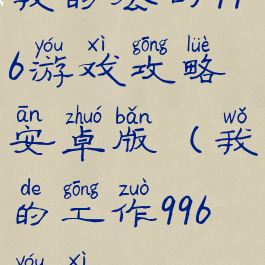 yóu xì gōng lüè
6游戏攻略
ān zhuó bǎn wǒ
安卓版（我
de gōng zuò
的工作996
yóu xì